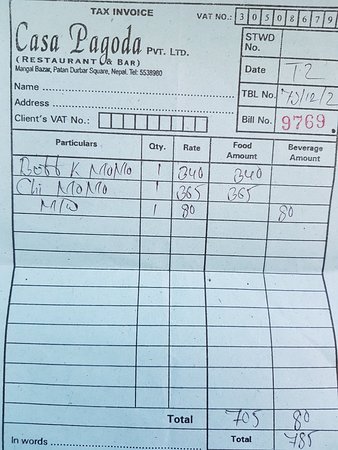 TAX INVOICE VAT NO.: 3 0 5 0 8 6 7 9
Casa Pagoda PVT. LTD.
(RESTAURANT & BAR)
Mangal Bazar, Patan Durbar Square, Nepal. Tel: 5538980
STWD No.
Date T-2
Name
TBL No.
Address
Client's VAT No.:
Bill No. 9769
Particulars Qty. Rate Food Amount Beverage Amount
Buff K MOMO 1 340 340
Chi MOMO 1 365 365
M/W 1 80 80
Total 705 80
In words Total 785